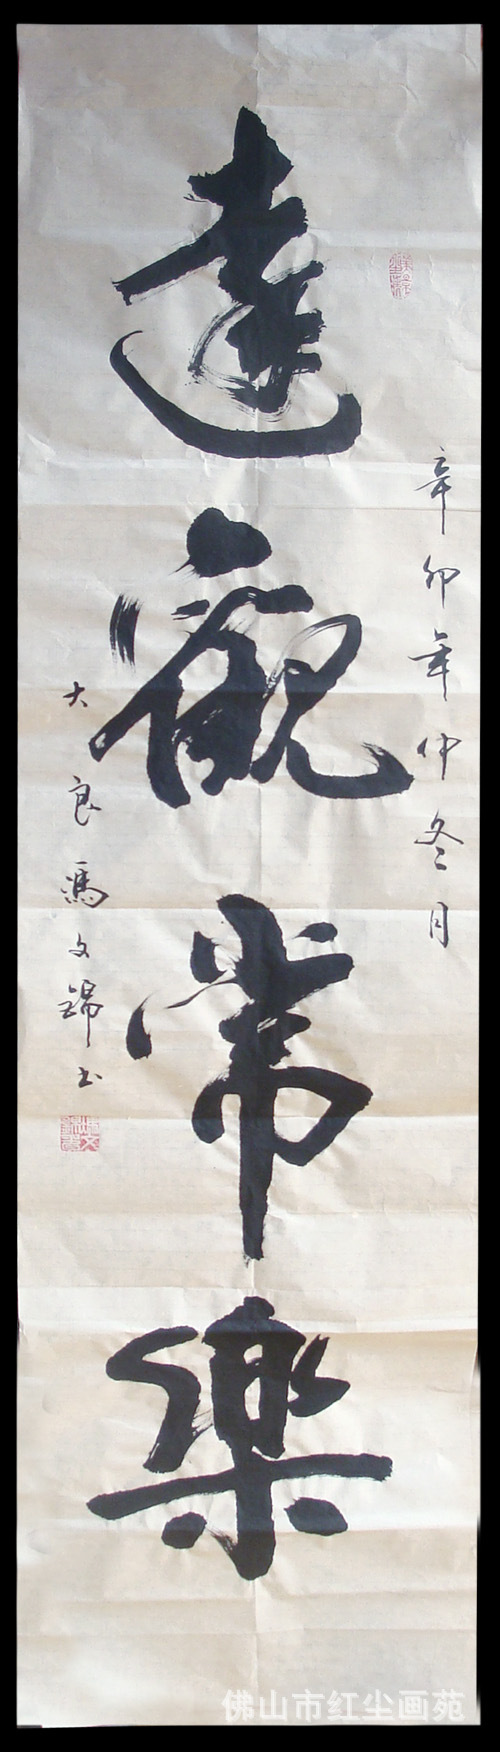 辛卯年仲冬月
達觀常樂
大良馮文錦书
佛山市红尘画苑